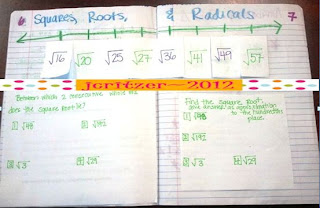 6 Squares, Roots, & Radicals 7
√16 √20 √25 √27 √36 √41 √49 √57
Jgritzer—2012
Between which 2 consecutive whole #s
does the square root lie?
1 √48
2
3 √3
4 √29
Find the square root.
to the hundredths
place.
1 √48
2
3 √3
4 √29